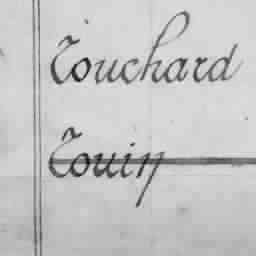 Touchard
Touin